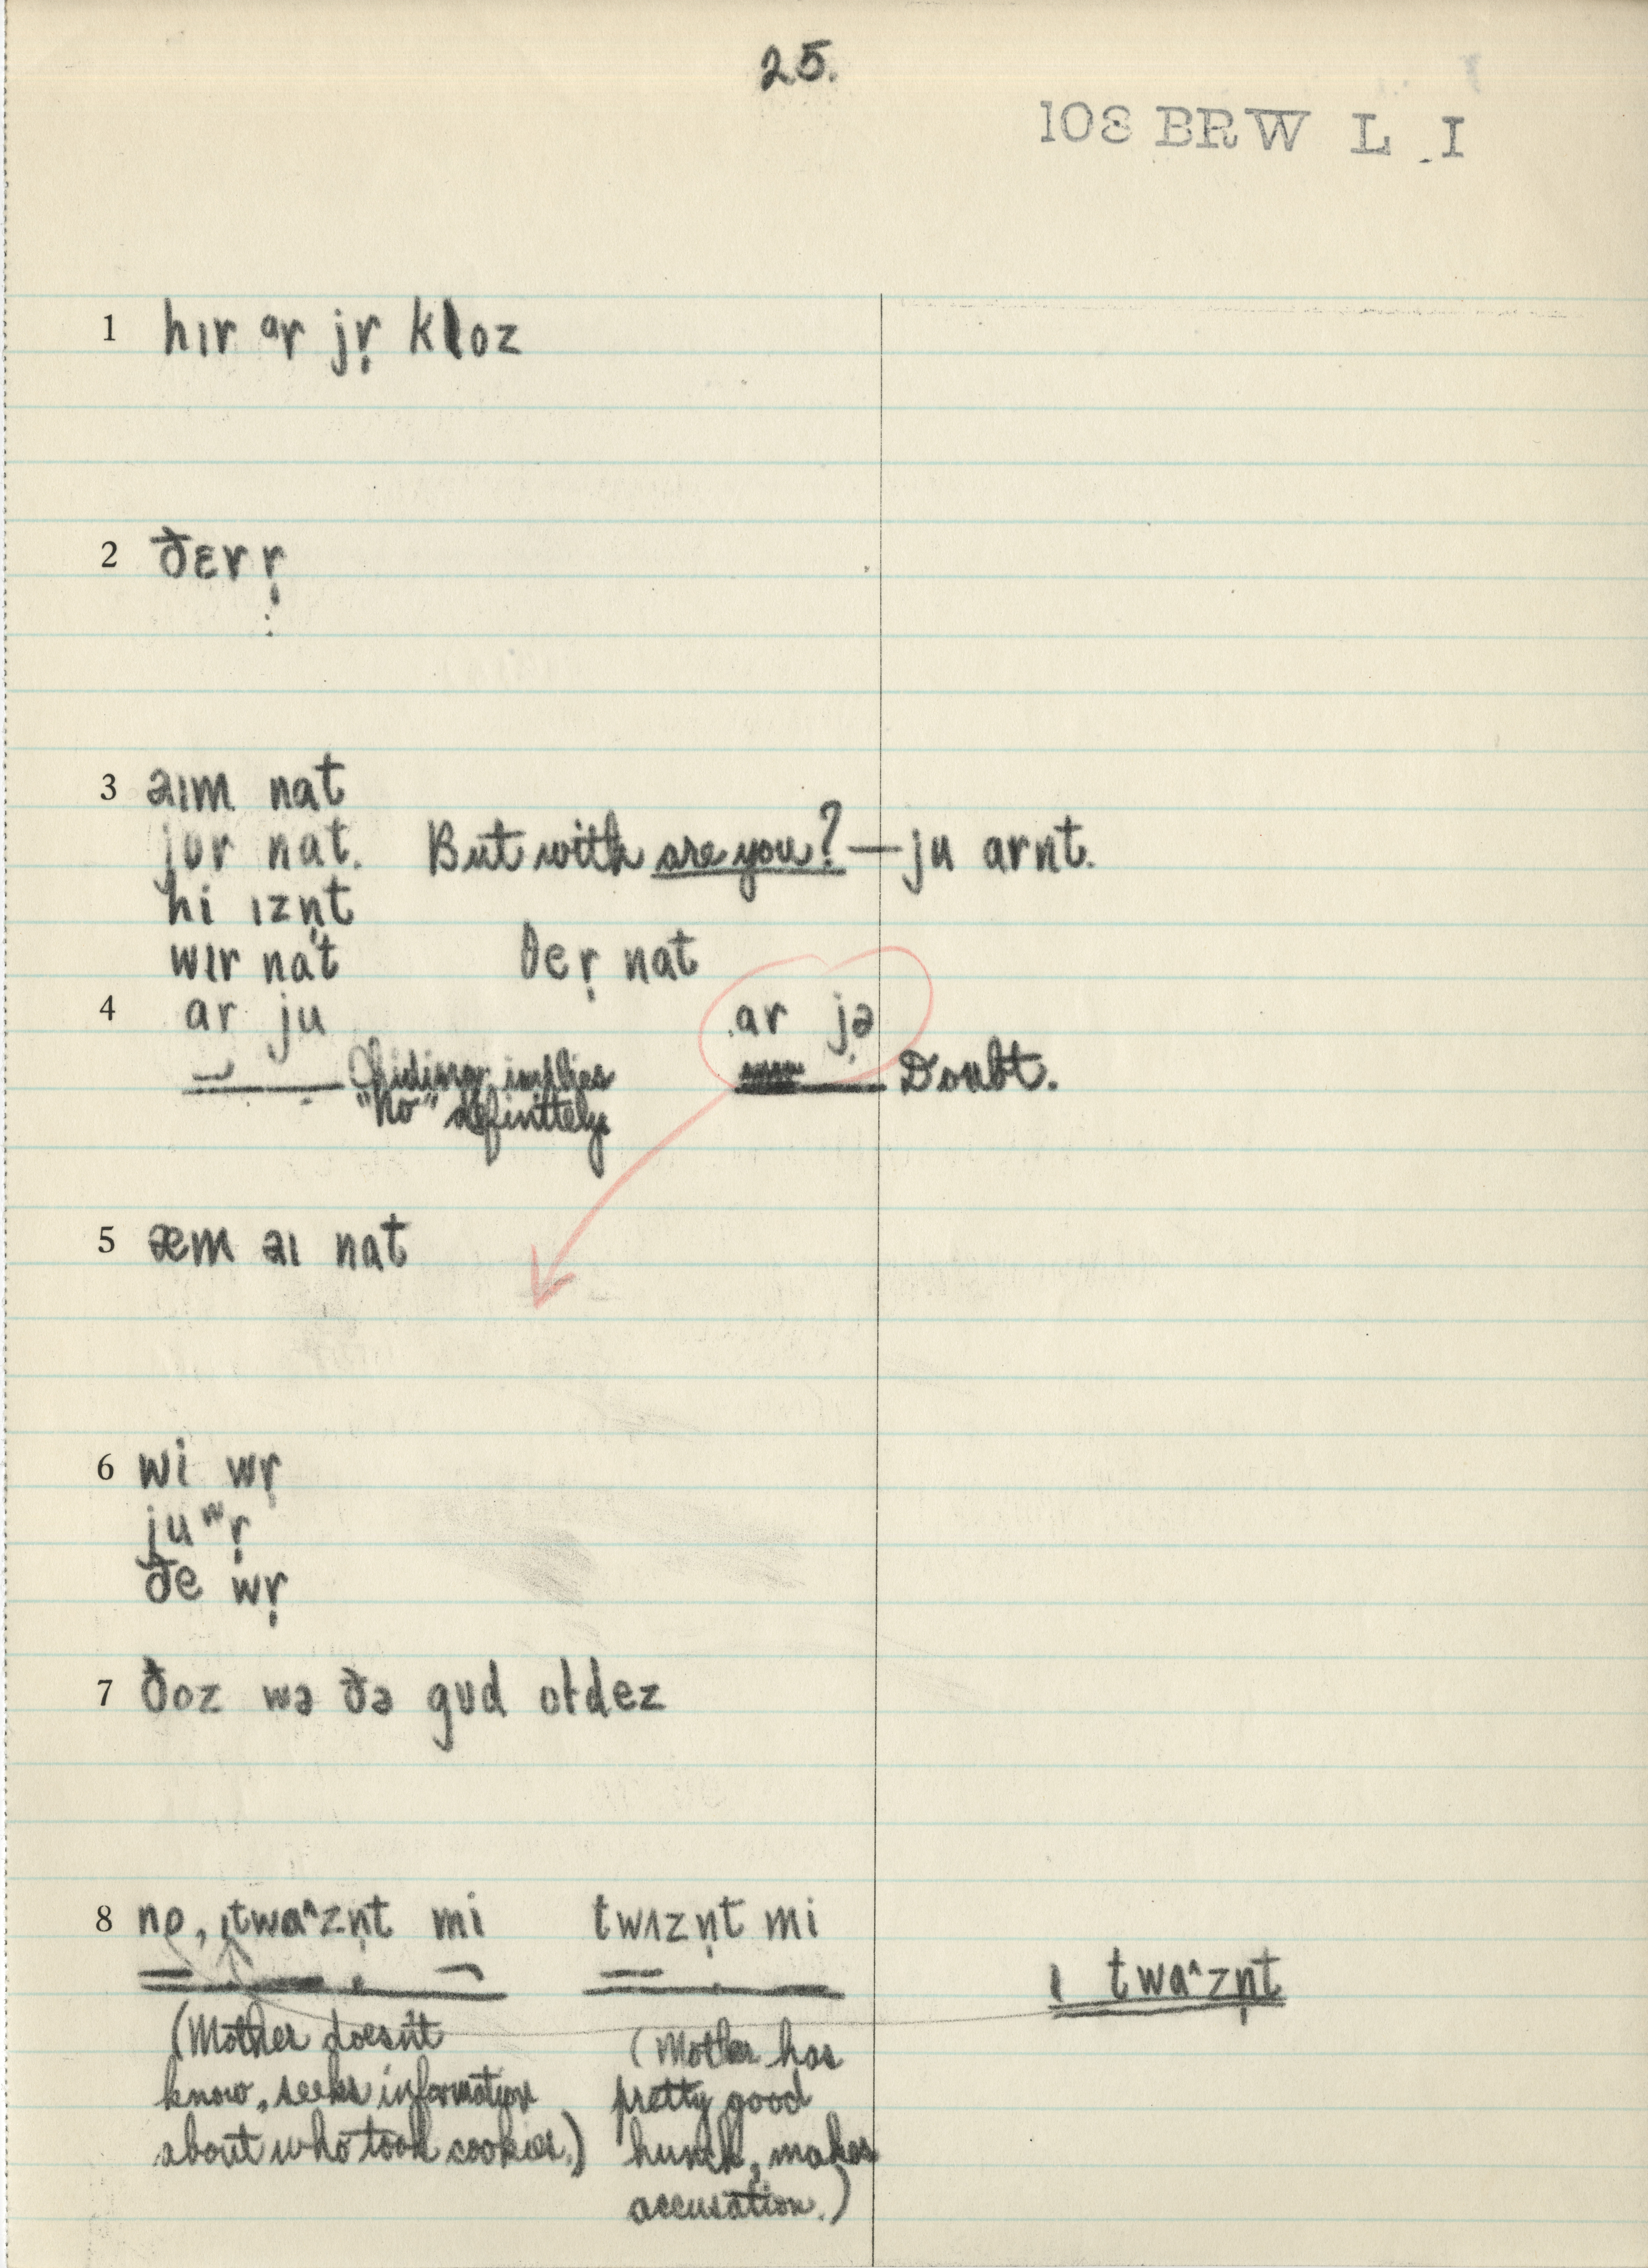 25.
108 BRW L I
1 hɪr ɑr jr̩ kloz
2 ðɛr r̩
3 aɪm nat
jʊr nat. But with are you? — ju arnt.
hi ɪzn̩t
wɪr nat ðer̩ nat
4 ar ju ar jə
Chiding implies Doubt.
"No" definitely
5 æm aɪ nat
6 wi wr̩
ju wr̩
ðe wr̩
7 ðoz wə ðə gʊd oɫdez
8 no, ɪtwaʌzn̩t mi twʌzn̩t mi
ɪ twaʌzn̩t
(Mother doesn't
know, seeks information
about who took cookies.)
(Mother has
pretty good
hunch, makes
accusation.)